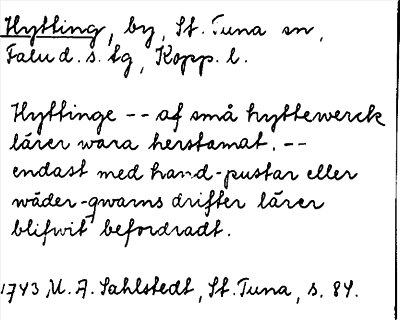 Hytting, by, St. Tuna sn,
Falu d. s. tg, Kopp. l.
Hyttinge -- af små hyttewerck
lärer wara herstamat. --
endast med hand-pustar eller
wäder-qwarns drifter lärer
blifwit befordradt.
1743 M. A. Sahlstedt, St. Tuna, s. 84.